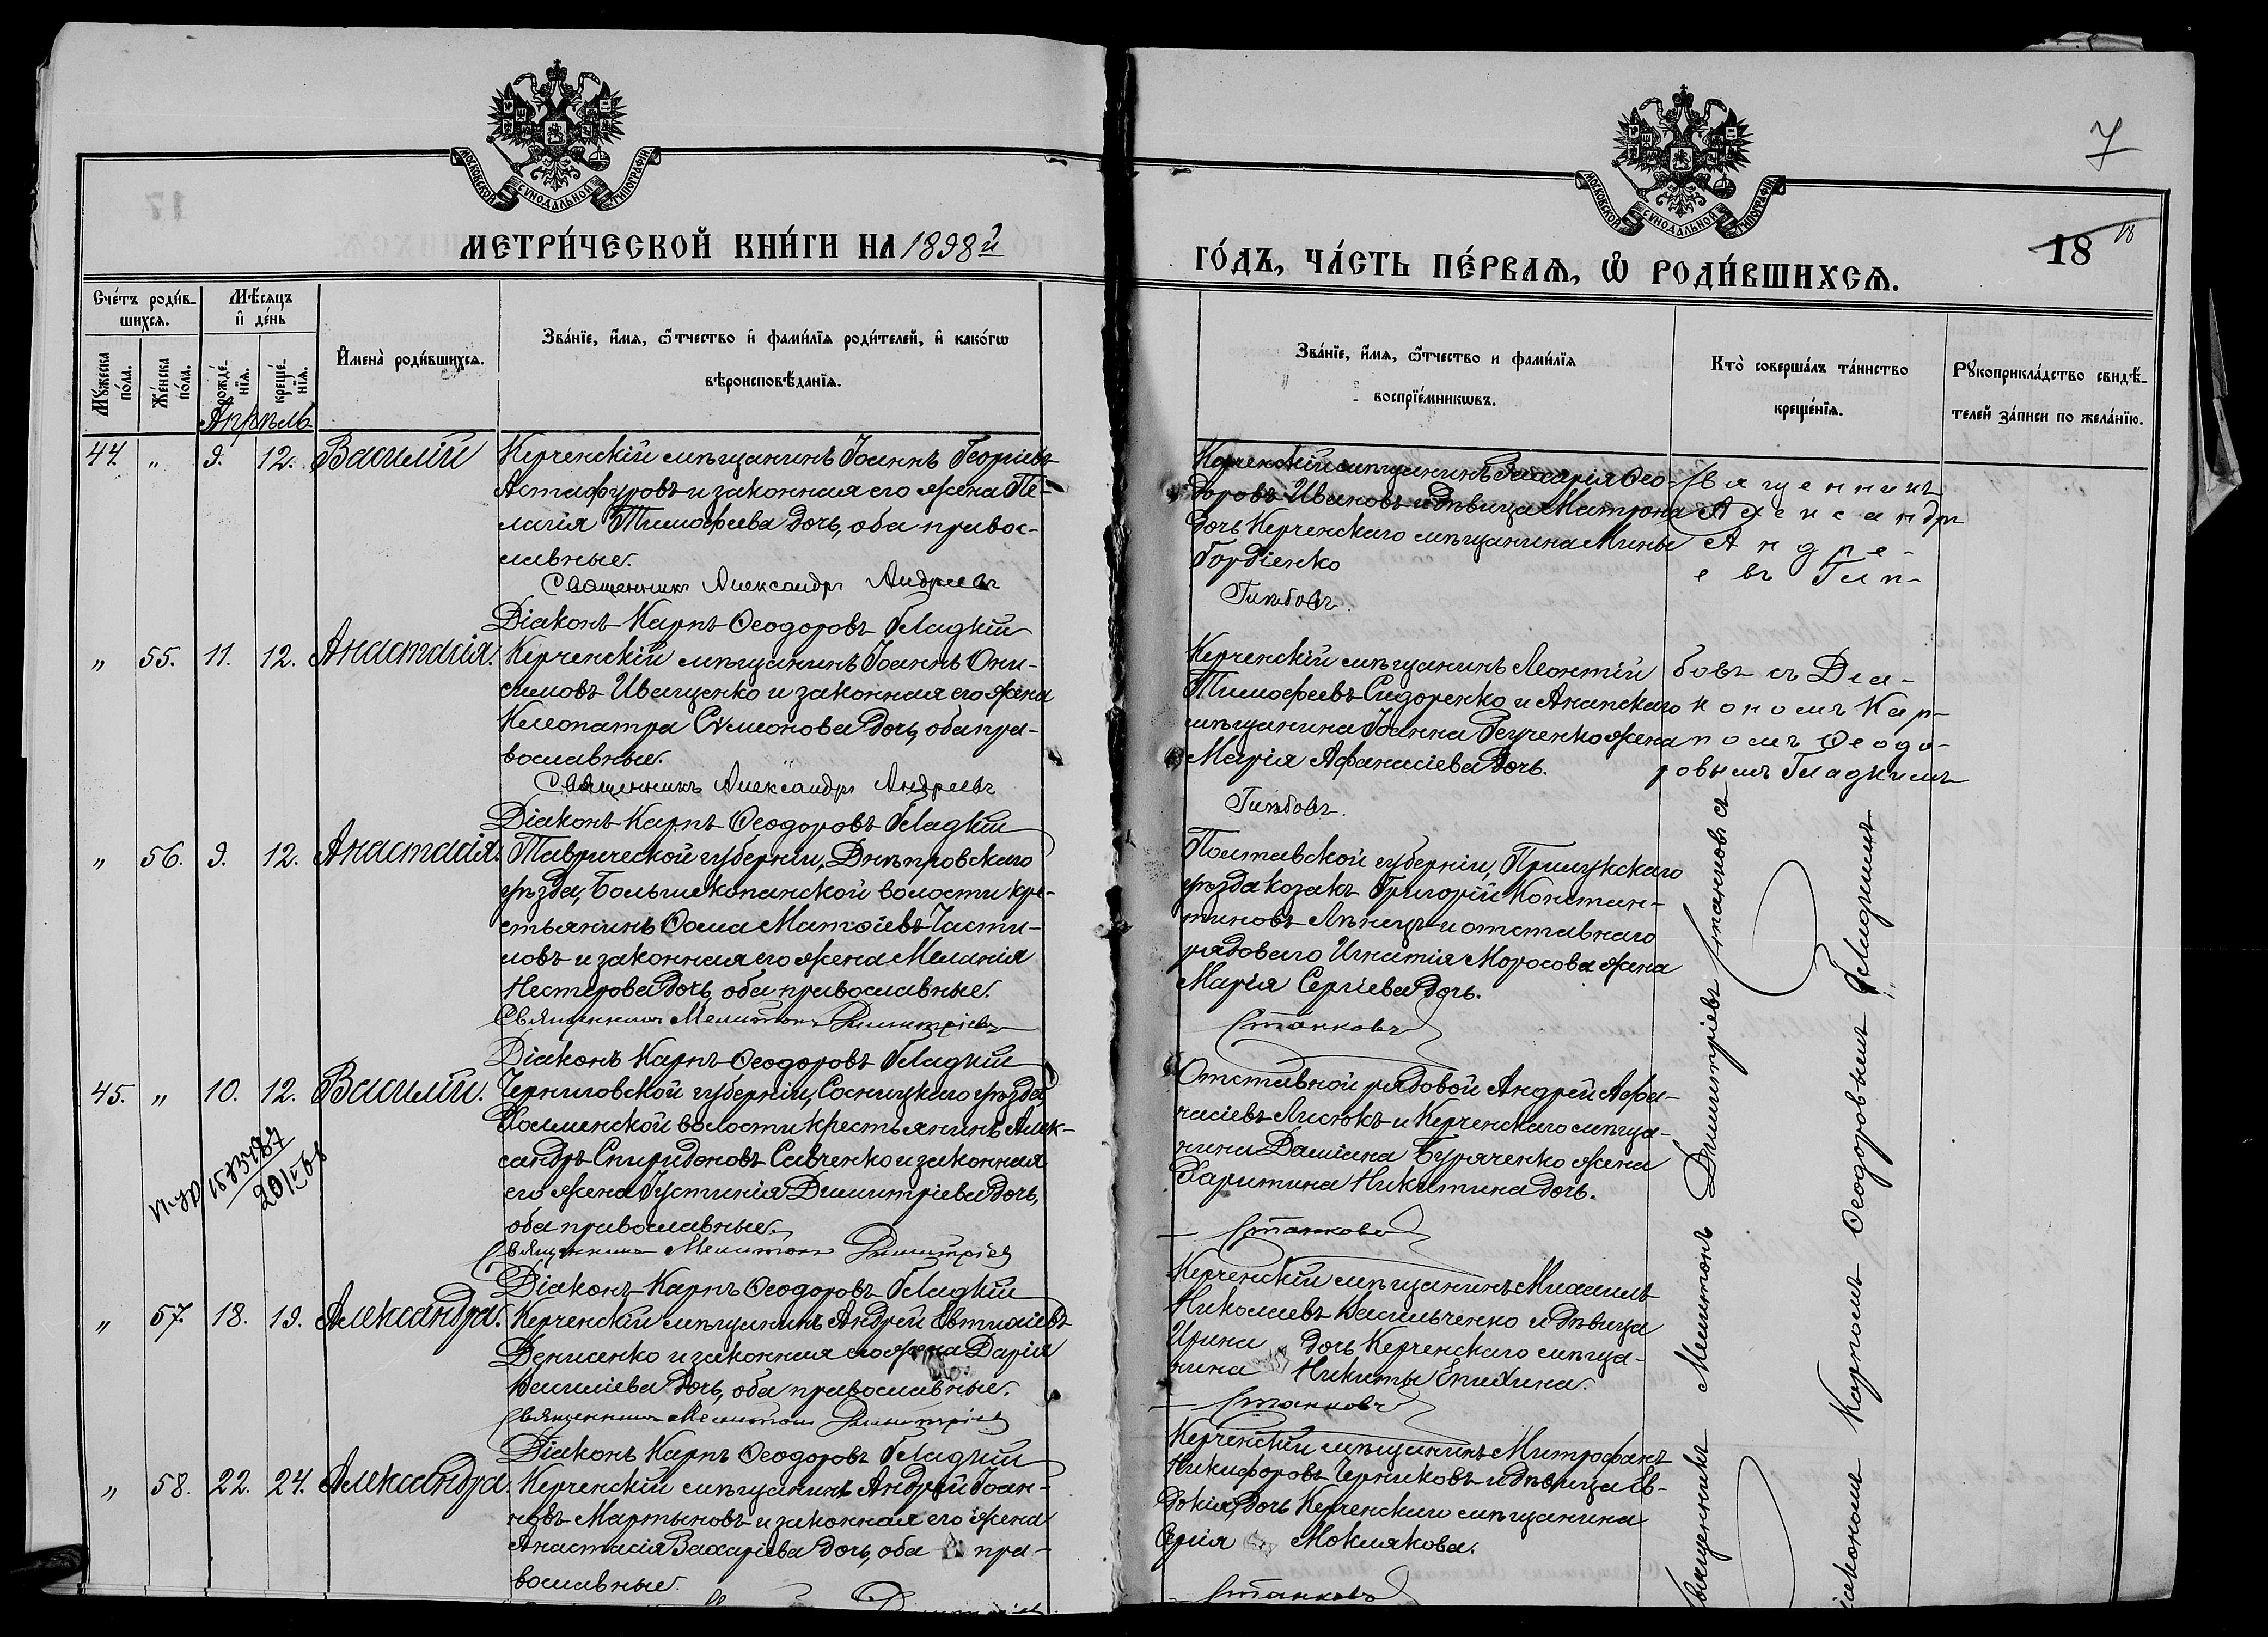 МОСКОВСКОЙ СѴНОДАЛЬНОЙ ТИПОГРАФІИ
МЕТРИ́ЧЕСКОЙ КНИ́ГИ НА 1898й
Сче́тъ роди́в-
шихсѧ.
Мѣ́сѧцъ
и҆ де́нь
Мꙋ́жеска
по́ла.
Же́нска
по́ла.
рожде́-
нїѧ.
креще́-
нїѧ.
И҆мена̀ роди́вшихсѧ.
Зва́нїе, и҆́мѧ, ѻ҆́тчество и҆ фами́лїѧ роди́телей, и҆ како́гѡ
вѣроисповѣ́данїѧ.
Апрѣль
44. " 9. 12. Василій
Керченскій мѣщанинъ Іоаннъ Георгіевъ
Астафуровъ и законная его жена Пе-
лагія Тимофеева дочь, оба правос-
лавные.
Священникъ Александръ Андреевъ
Діаконъ Карпъ Ѳеодоровъ Гладкій
" 55. 11. 12. Анастасія.
Керченскій мѣщанинъ Іоаннъ Они-
симовъ Иващенко и законная его жена
Клеопатра Сѵмеонова дочь, оба пра-
вославные.
Священникъ Александръ Андреевъ
Діаконъ Карпъ Ѳеодоровъ Гладкій
" 56. 9. 12. Анастасія.
Таврической губерніи, Днѣпровскаго
уѣзда, Большекопанской волости кре-
стьянинъ Ѳома Матѳіевъ Части-
ловъ и законная его жена Меланія
Нестерова дочь, оба православные.
Священникъ Мелитонъ Димитріевъ
Діаконъ Карпъ Ѳеодоровъ Гладкій
45. " 10. 12. Василій.
Черниговской губерніи, Сосницкаго уѣзда,
Холменской волости крестьянинъ Алек-
сандръ Спиридоновъ Савченко и законная
его жена Іустинія Димитріева дочь,
оба православные.
Священникъ Мелитонъ Димитріевъ
Діаконъ Карпъ Ѳеодоровъ Гладкій
" 57. 18. 19. Александра.
Керченскій мѣщанинъ Андрей Евтихіевъ
Денисенко и законная его жена Дарія
Василіева дочь, оба православные.
Священникъ Мелитонъ Димитріевъ
Діаконъ Карпъ Ѳеодоровъ Гладкій
" 58. 22. 24. Александра.
Керченскій мѣщанинъ Андрей Іоан-
новъ Мартыновъ и законная его жена
Анастасія Захаріева дочь, оба пра-
вославные.
7
МОСКОВСКОЙ СѴНОДАЛЬНОЙ ТИПОГРАФІИ
18 18
ГО́ДЪ, ЧА́СТЬ ПЕ́РВАѦ, Ѡ҆ РОДИ́ВШИХСѦ.
Зва́нїе, и҆́мѧ, ѻ҆́тчество и фами́лїѧ
воспрїе́мникѡвъ.
Кто̀ соверша́лъ та́инство
креще́нїѧ.
Рꙋкоприкла́дство свидѣ́-
телей за́писи по жела́нїю.
Керченскій мѣщанинъ Захарія Ѳео-
доровъ Ивановъ и дѣвица Матрона
дочь Керченскаго мѣщанина Мины
Гордіенко
Глѣбовъ.
Керченскій мѣщанинъ Леонтій
Тимофеевъ Сидоренко и Анапскаго
мѣщанина Іоанна Геученко жена
Марія Афанасіева дочь.
Глѣбовъ.
Полтавской губерніи, Прилукскаго
уѣзда козакъ Григорій Констан-
тиновъ Лѣнецъ и отставнаго
рядоваго Игнатія Моросова жена
Марія Сергіева дочь.
Станковъ
Отставной рядовой Андрей Афа-
насіевъ Лисюкъ и Керченскаго мѣща-
нина Даміана Буряченко жена
Харитина Никитина дочь.
Станковъ
Керченскій мѣщанинъ Михаилъ
Николаевъ Васильченко и дѣвица
Ирина дочь Керченскаго мѣща-
нина Никиты Епихина.
Станковъ
Керченскій мѣщанинъ Митрофанъ
Никифоровъ Черниковъ и дѣвица Ев-
докія, дочь Керченскаго мѣщанина
Моклякова.
Станковъ
Священникъ
Александръ
Андре-
евъ Глѣ-
бовъ съ Діа-
кономъ Кар-
помъ Ѳеодо-
ровымъ Гладкимъ
Священникъ Мелитонъ Димитріевъ Станковъ съ
Діакономъ Карпомъ Ѳеодоровымъ Гладкимъ